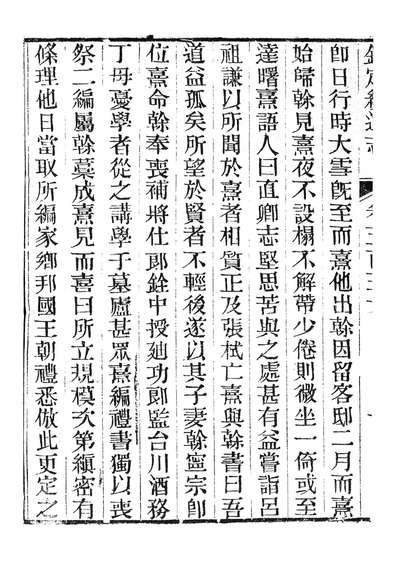 欽定續通志
卽日行時大雪旣至而熹他出榦因留客邸二月而熹
始歸榦見熹夜不設榻不解帶少倦則微坐一倚或至
達曙熹語人曰直卿志堅思苦與之處甚有益嘗詣呂
祖謙以所聞於熹者相質正及張栻亡熹與榦書曰吾
道益孤矣所望於賢者不輕後遂以其子妻榦寧宗卽
位熹命榦奉表補將仕郎銓中授廸功郎監台川酒務
丁母憂學者從之講學于墓廬甚眾熹編禮書獨以喪
祭二編屬榦藁成熹見而喜曰所立規模次第縝密有
條理他日當取所編家鄉邦國王朝禮悉倣此更定之